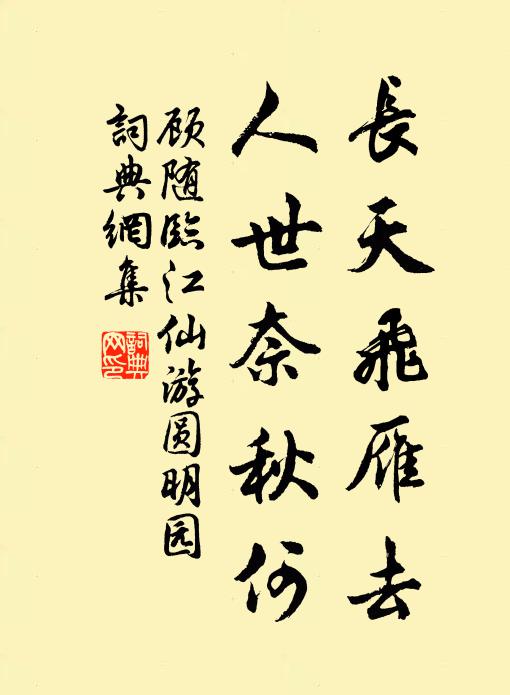 長天飛雁去
人世奈秋何
顾随臨江仙游圆明园
詞典網集
詞典
网印